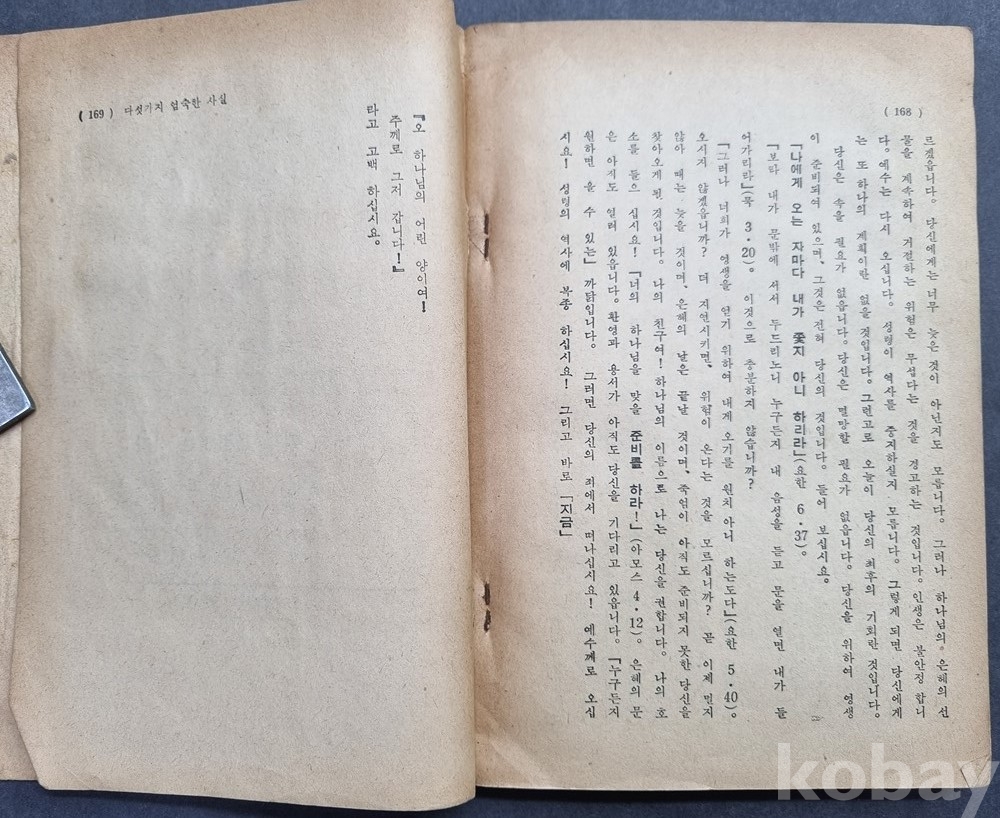 ( 168 )
르겠읍니다. 당신에게는 너무 늦은 것이 아닌지도 모릅니다. 그러나 하나님의. 은혜의 선
물을 계속하여 거절하는 위험은 무섭다는 것을 경고하는 것입니다. 인생은 불안정 합니
다. 예수는 다시 오십니다. 성령이 역사를 중지하실지 모릅니다. 그렇게 되면 당신에게
는 또 하나의 계획이란 없을 것입니다. 그런고로 오늘이 당신의 최후의 기회란 것입니다.
당신은 속을 필요가 없읍니다. 당신은 멸망할 필요가 없읍니다. 당신을 위하여 영생
이 준비되여 있으며, 그것은 전혀 당신의 것입니다. 들어 보십시요.
「나에게 오는 자마다 내가 쫓지 아니 하리라」(요한 6・37)。
「보라 내가 문밖에 서서 두드리노니 누구든지 내 음성을 듣고 문을 열면 내가 들
어가리라」(묵 3・20)。 이것으로 충분하지 않습니까?
「그러나 너희가 영생을 얻기 위하여 내게 오기를 원치 아니 하는도다」(요한 5・40)。
오시지 않겠읍니까? 더 지연시키면, 위험이 온다는 것을 모르십니까? 곧 이제 믿지
않아 때는 늦을 것이며, 은혜의 날은 끝날 것이며, 죽엄이 아직도 준비되지 못한 당신을
찾아오게 될 것입니다. 나의 친구여! 하나님의 이름으로 나는 당신을 권합니다. 나의 호
소를 들으 십시요! 「너의 하나님을 맞을 준비를 하라!」(아모스 4・12)。 은혜의 문
은 아직도 열려 있읍니다. 환영과 용서가 아직도 당신을 기다리고 있읍니다. 「누구든지
원하면 올 수 있는」 까닭입니다. 그러면 당신의 죄에서 떠나십시요! 예수께로 오십
시요! 성령의 역사에 복종 하십시요! 그리고 바로 「지금」
( 169 ) 다섯가지 엄숙한 사실
『오 하나님의 어린 양이여!
주께로 그저 갑니다!』
라고 고백 하십시요。
kobay